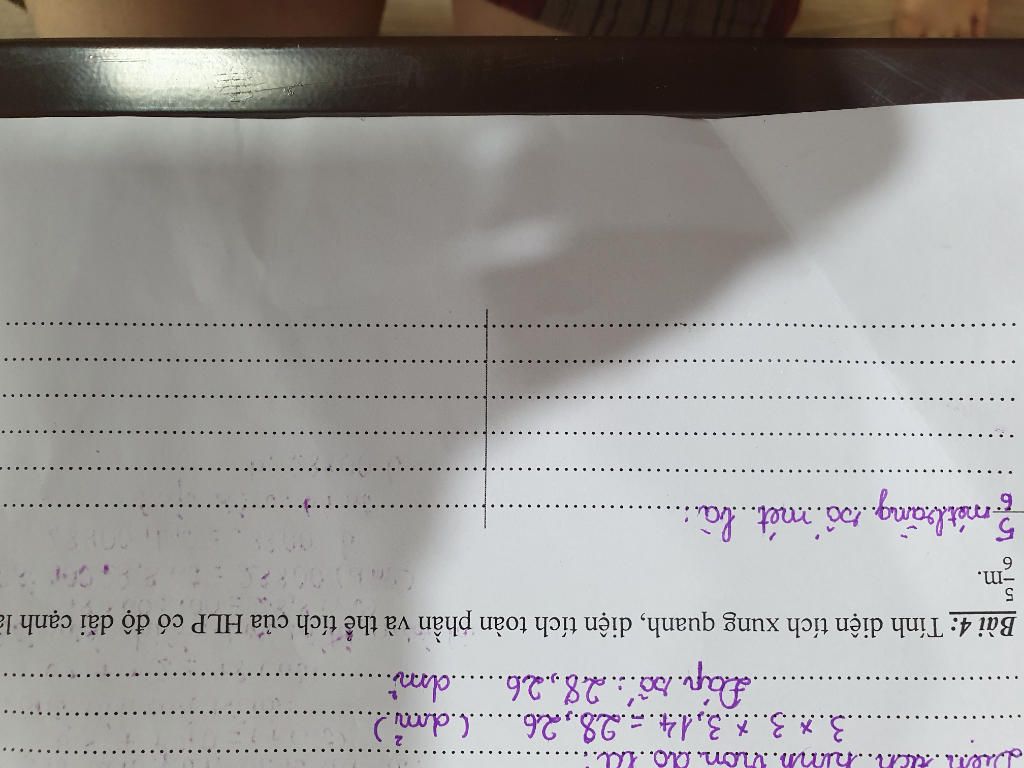 Diện tích hình tròn đó là:
3 × 3 × 3,14 = 28,26 (dm²)
Đáp số: 28,26 dm²
Bài 4: Tính diện tích xung quanh, diện tích toàn phần và thể tích của HLP có độ dài cạnh là
5/6 m.
5/6 mét bằng số mét là: